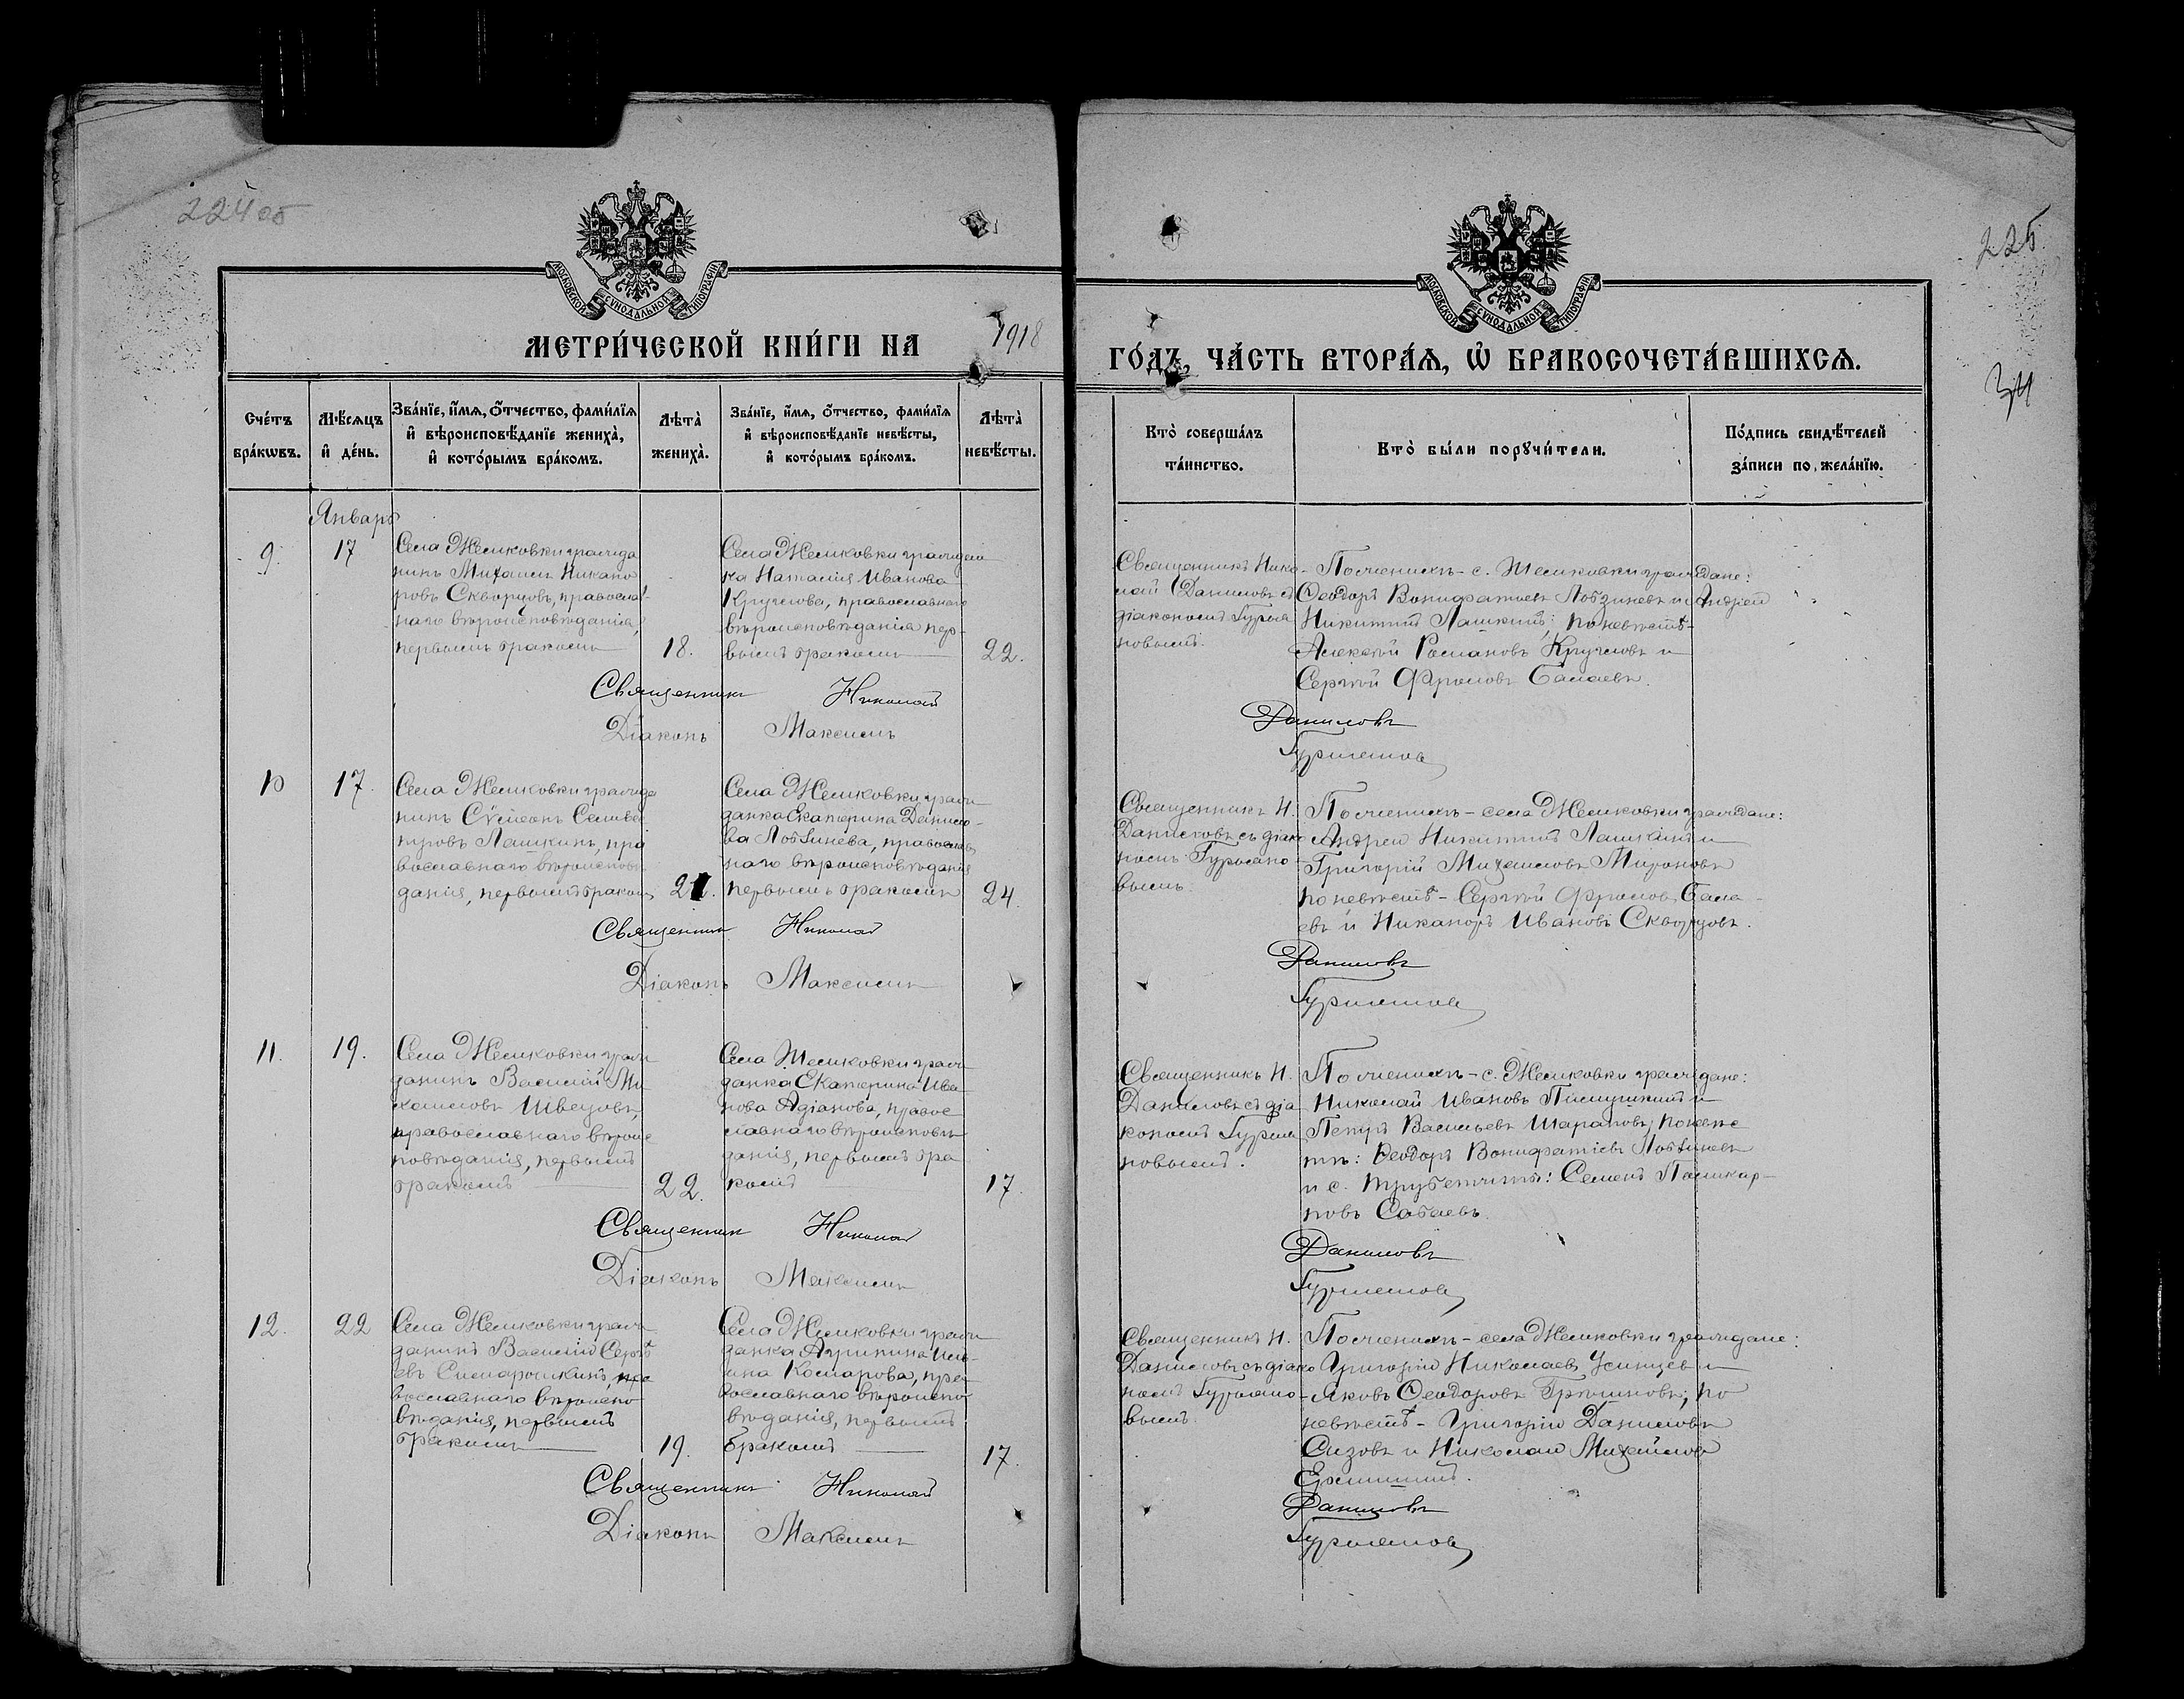 224об
225
34
МОСКОВСКОЙ СѴНОДАЛЬНОЙ ТИПОГРАФІИ
МОСКОВСКОЙ СѴНОДАЛЬНОЙ ТИПОГРАФІИ
МЕТРИ́ЧЕСКОЙ КНИ́ГИ НА 1918
ГО́ДЪ, ЧА́СТЬ ВТОРА́Ѧ, Ѽ БРАКОСОЧЕТА́ВШИХСѦ.
Сче́тъ бра́кѡвъ.
Мѣ́сѧцъ и҆ де́нь.
Зва́нїе, и҆́мѧ, ѻ҆́тчество, фами́лїѧ
и҆ вѣроисповѣ́данїе жениха̀,
и҆ кото́рымъ бра́комъ.
Лѣта̀ жениха̀.
Зва́нїе, и҆́мѧ, ѻ҆́тчество, фами́лїѧ
и҆ вѣроисповѣ́данїе невѣ́сты,
и҆ кото́рымъ бра́комъ.
Лѣта̀ невѣ́сты.
Кто̀ соверша́лъ
та́инство.
Кто̀ бы́ли порꙋчи́тели.
По́дпись свидѣ́телей
за́писи по жела́нїю.
Январь
9.
17
Села Жемковки гражда
нинъ Михаилъ Никано
ровъ Скворцовъ, православ-
наго вѣроисповѣданія,
первымъ бракомъ
18.
Села Жемковки граждан
ка Наталія Иванова
Круглова, православнаго
вѣроисповѣданія пер-
вымъ бракомъ
22.
Священникъ Нико-
лай Даниловъ съ
діакономъ Гурья
новымъ.
По женихѣ - с. Жемковки граждане:
Ѳеодоръ Вонифатьевъ Лобзиневъ и Андрей
Никитинъ Лашкинъ; по невѣстѣ -
Алексѣй Романовъ Кругловъ и
Сергѣй Фроловъ Балаевъ.
Священникъ Николай Даниловъ
Діаконъ Максимъ Гурьянов
10
17.
Села Жемковки гражда
нинъ Сѵмеонъ Селиве
ровъ Лашкинъ, пра
вославнаго вѣроисповѣ
данія, первымъ бракомъ
21.
Села Жемковки граж
данка Екатерина Данило-
ва Лобзинева, православ
наго вѣроисповѣданія
первымъ бракомъ
24.
Священникъ Н.
Даниловъ съ діако
номъ Гурьяно
вымъ.
По женихѣ - села Жемковки граждане:
Андрей Никитинъ Лашкинъ и
Григорій Михаиловъ Мироновъ
по невѣстѣ - Сергѣй Фроловъ Бала-
евъ и Никаноръ Ивановъ Скворцовъ.
Священникъ Николай Даниловъ
Діаконъ Максимъ Гурьянов
11.
19.
Села Жемковки граж
данинъ Василій Ми
хаиловъ Швецовъ,
православнаго вѣроис
повѣданія, первымъ
бракомъ
22.
Села Жемковки граж
данка Екатерина Ива
нова Адіанова, право
славнаго вѣроисповѣ
данія, первымъ бра
комъ
17.
Священникъ Н.
Даниловъ съ діа
кономъ Гурья
новымъ.
По женихѣ - с. Жемковки граждане:
Николай Ивановъ и
Петръ Васильевъ Шараповъ, по невѣс
тѣ: Ѳеодоръ Вонифатіевъ Лобзиневъ
и с. Трубетчины: Семенъ
новъ Сабаевъ.
Священникъ Николай Даниловъ
Діаконъ Максимъ Гурьянов
12.
22
Села Жемковки граж
данинъ Василій Сергѣ
евъ Симарошкинъ, пра
вославнаго вѣроиспо
вѣданія, первымъ
бракомъ
19.
Села Жемковки граж
данка Агрипина Иль-
ина Комарова, пра-
вославнаго вѣроиспо-
вѣданія, первымъ
бракомъ
17.
Священникъ Н.
Даниловъ съ діако
номъ Гурьяно-
вымъ.
По женихѣ - села Жемковки граждане:
Григорій Николаевъ и
Яковъ Ѳеодоровъ Грѣшновъ; по
невѣстѣ - Григорій Даниловъ
Сизовъ и Николай Михайлов
Ерминъ.
Священникъ Николай Даниловъ
Діаконъ Максимъ Гурьянов